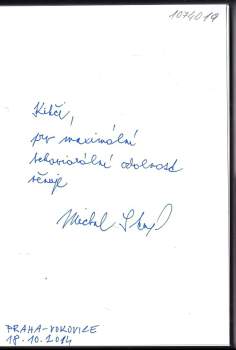 1074014
Kikči,
pro maximální
behaviorální odolnost
věnuje
Michal
PRAHA-VOKOVICE
18.10.2014